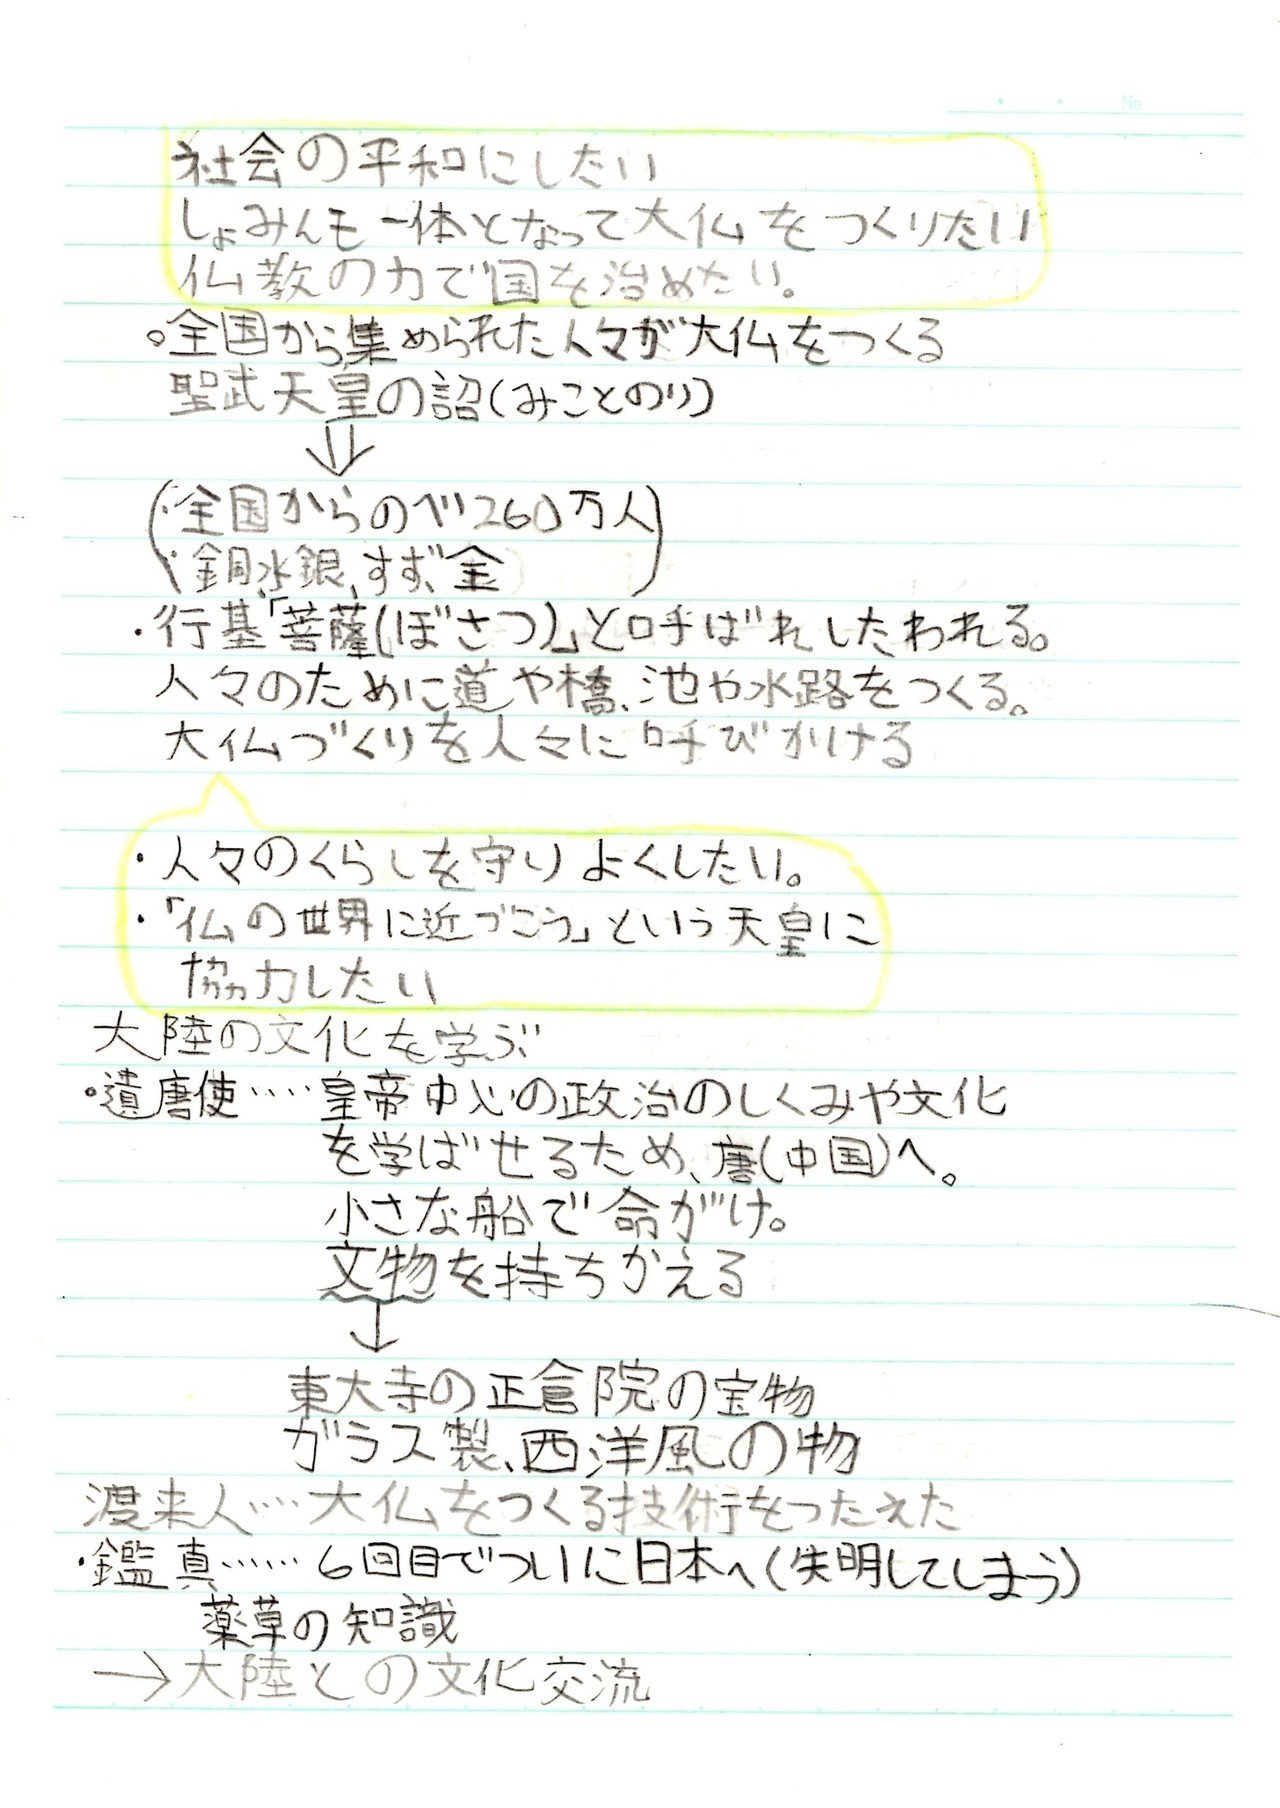 No
社会の平和にしたい
しょみんも一体となって大仏をつくりたい
仏教の力で国を治めたい。
。全国から集められた人々が大仏をつくる
聖武天皇の詔(みことのり)
↓
(・全国からのべ260万人
・銅、水銀、すず、金)
・行基「菩薩(ぼさつ)」と呼ばれしたわれる。
人々のために道や橋、池や水路をつくる。
大仏づくりを人々に呼びかける
・人々のくらしを守りよくしたい。
・「仏の世界に近づこう」という天皇に
協力したい
大陸の文化を学ぶ
・遣唐使……皇帝中心の政治のしくみや文化
を学ばせるため、唐(中国)へ。
小さな船で命がけ。
文物を持ちかえる
↓
東大寺の正倉院の宝物
ガラス製、西洋風の物
渡来人……大仏をつくる技術をつたえた
・鑑真……6回目でついに日本へ(失明してしまう)
薬草の知識
→大陸との文化交流